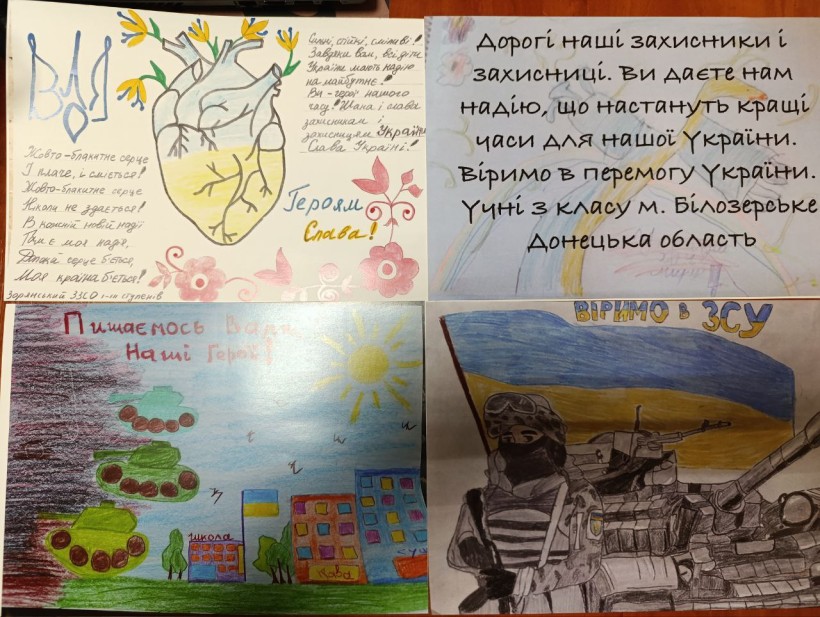 Сильні, стійкі, сміливі!
Завдяки вам, всі діти
України мають надію
на майбутнє!
Ви - герої нашого
часу! Шана і слава
захисникам і
захисницям України
Слава Україні!
Жовто-блакитне серце
І плаче, і сміється!
Жовто-блакитне серце
Ніколи не здається!
В кожній новій надії
Там є моя надія,
серце б'ється,
Моя країна б'ється!
Зарянський ЗЗСО І-ІІІ ступенів
Героям
Слава!
Дорогі наші захисники і
захисниці. Ви даєте нам
надію, що настануть кращі
часи для нашої України.
Віримо в перемогу України.
Учні з класу м. Білозерське
Донецька область
Пишаємось Вами
Наші Герої!
школа
Кава
ВІРИМО в ЗСУ